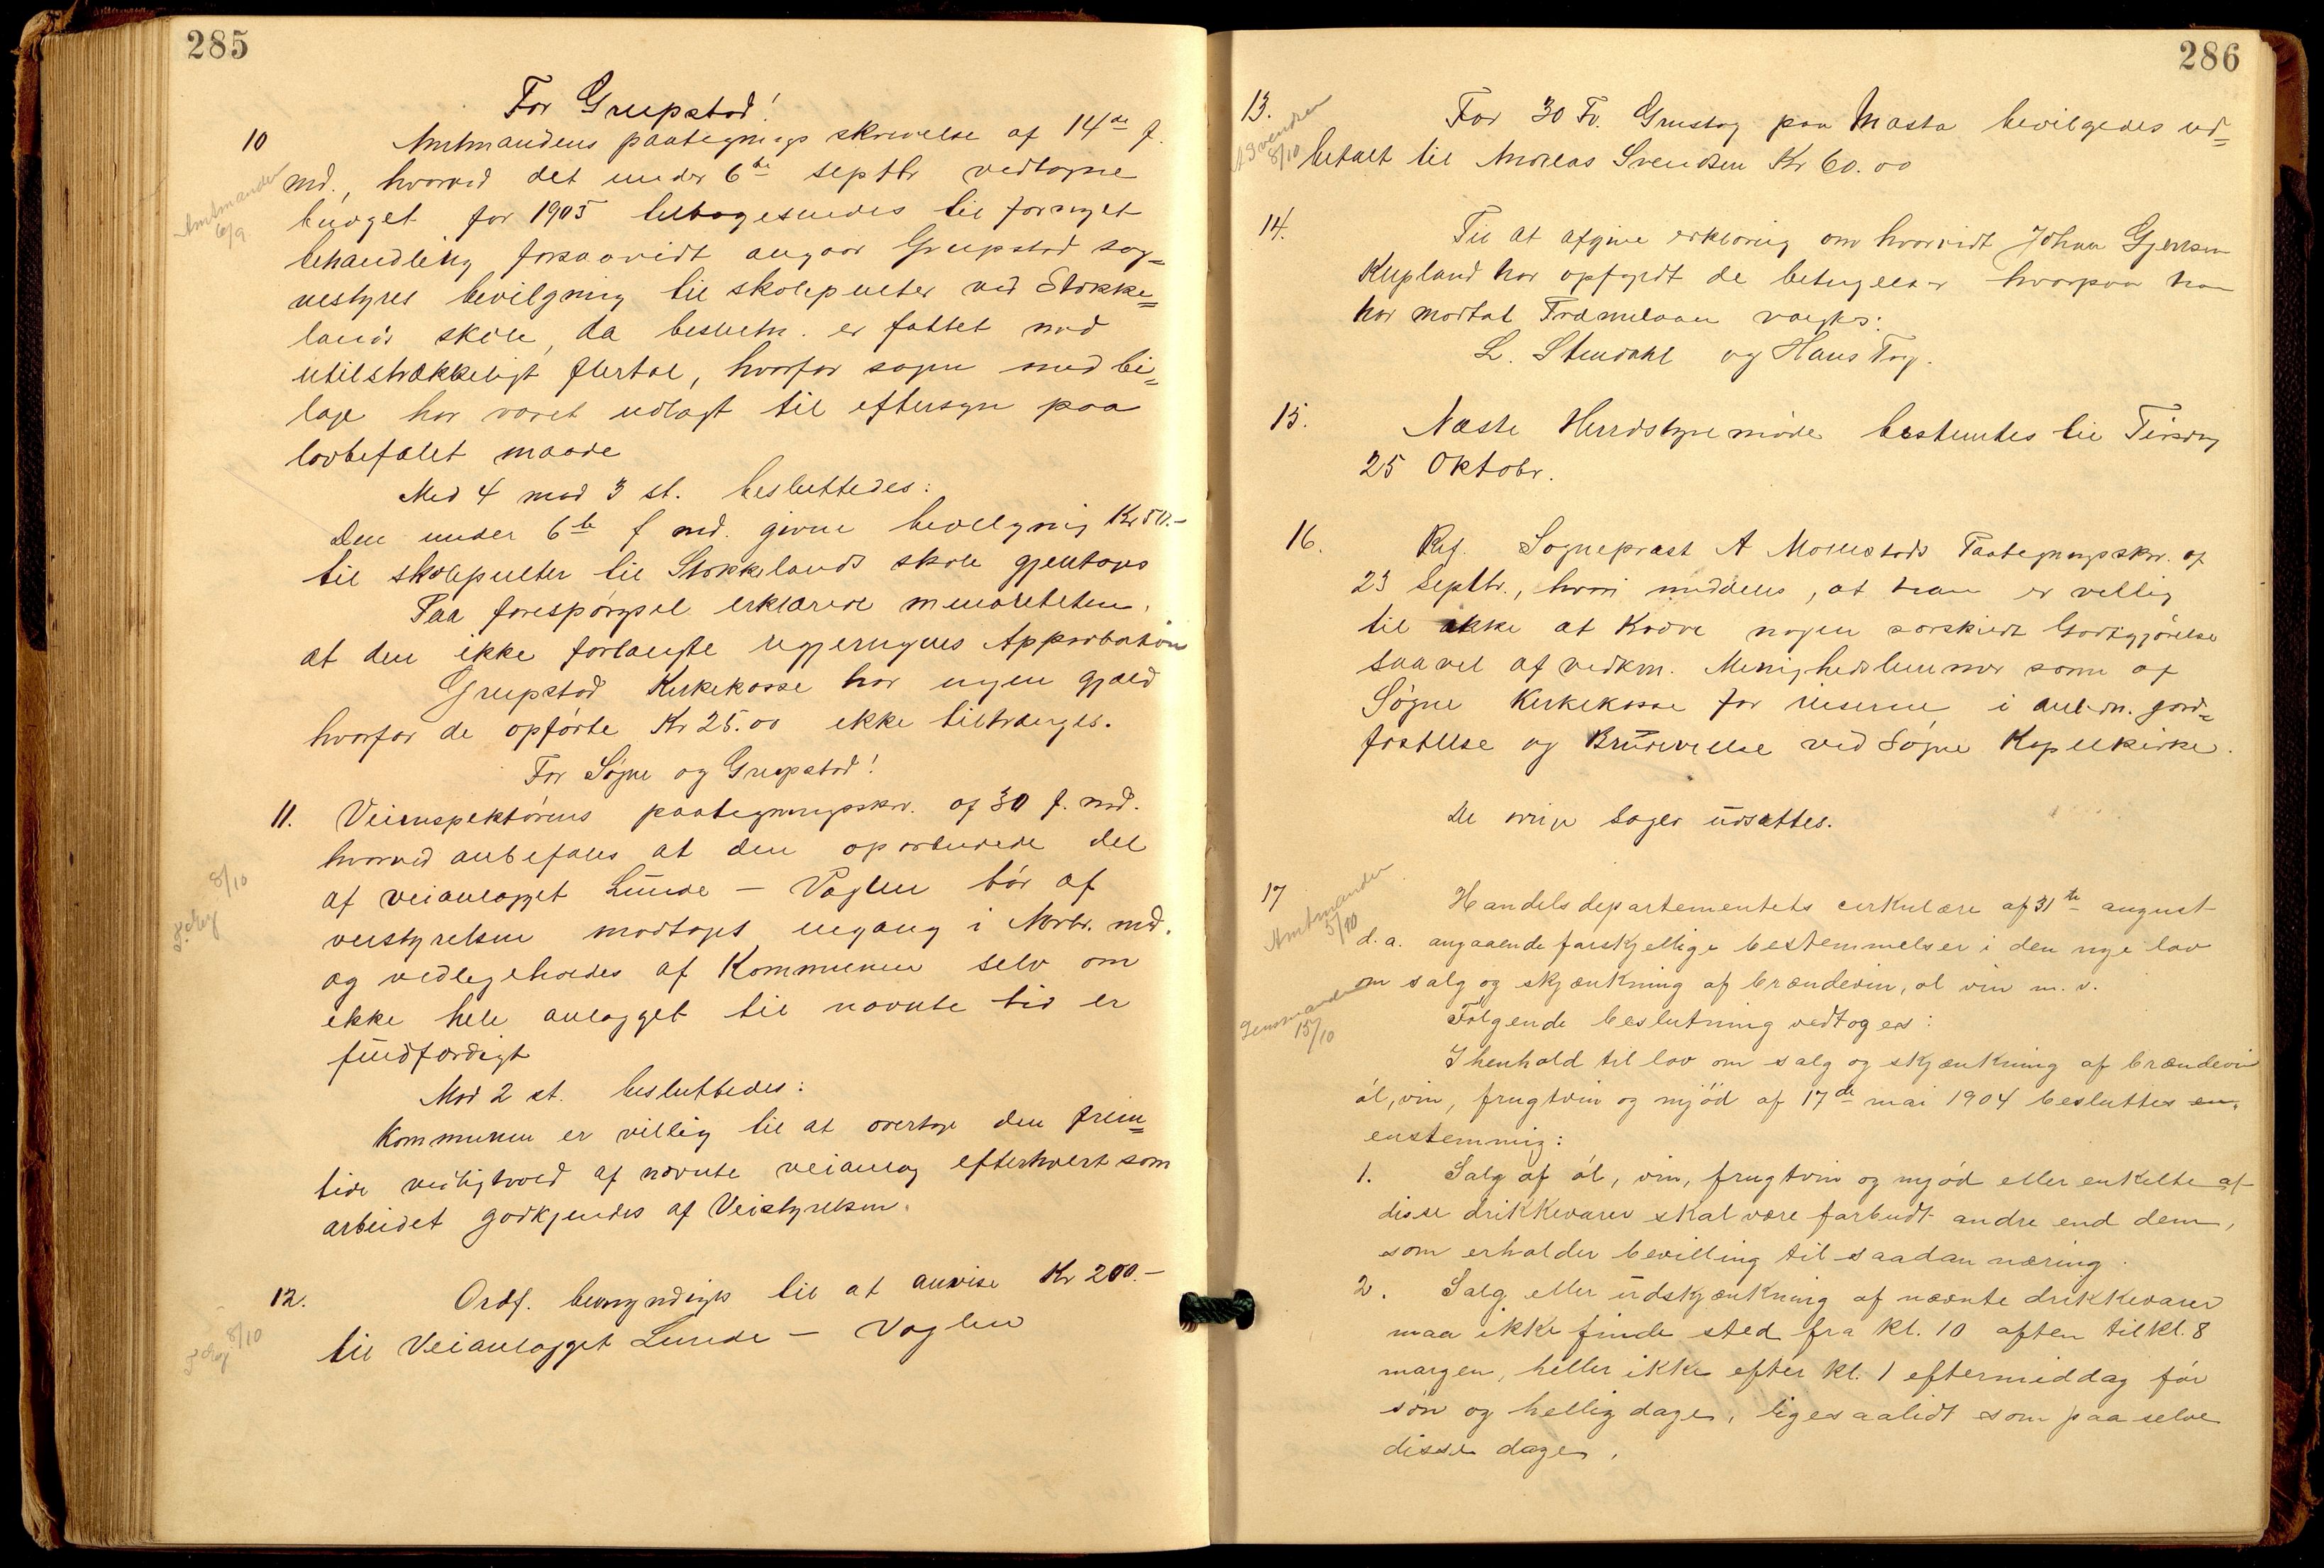 285
For Greipstad!
10
Amtmandens paategnings skrivelse af 14de f.
md., hvorved det under 6te septbr vedtagne
Amtmanden
6/9
budget for 1905 tilbagesendes til fornyet
behandling forsaavidt angaar Greipstad sog=
nestyres bevilgning til skolepulter ved Stokke=
lands skole, da beslutn. er fattet med
utilstrækkeligt flertal, hvorfor sagen med bi=
lage har været udlagt til eftersyn paa
lovbefalet maade
Med 4 mod 3 st. besluttedes:
Den under 6te f md. givne bevilgning Kr 50.-
til skolepulter til Stokkelands skole gjentages
Paa forespørgsel erklærede menoriteten,
at den ikke forlangte regjeringens Approbation
Greipstad Kirkekasse har ingen gjæld
hvorfor de opførte Kr 25.00 ikke tiltrænges.
For Søgne og Greipstad!
11. Veiinspektørens paategningsskr. af 30 f. md.
hvorved anbefales at den oparbeidede del
8/10
af veianlægget Lunde - Vaglen bør af
veistyrelsen modtages engang i Novbr. md.
og vedligeholdes af Kommunen selv om
ikke hele anlægget til nævnte tid er
fuldfærdigt
Mod 2 st. besluttedes:
Kommunen er villig til at overtage den frem=
tide vedligehold af nævnte veianlæg efterhvert som
arbeidet godkjendes af Veistyrelsen.
12.
Ordf. bemyndiges til at anvise Kr 200.-
8/10
til Veianlægget Lunde - Vaglen
286
13.
A Svendsen
8/10
For 30 Fv. Grustag paa Masta bevilgedes ud=
betalt til Andreas Svendsen Kr 60.00
14.
Til at afgive erklæring om hvorvidt Johan Gjertsen
Kupland har opfyldt de betingelser hvorpaa han
har mottat valgtes:
L. Stendahl og Hans Try.
15.
Næste Herredstyremøde bestemtes til Tirsdag
25 Oktobr.
16.
Ref. Sogneprest A Mollestads Paategningsskr. af
23 Septbr., hvori meddeles, at han er villig
til ikke at kræve nogen særskilt Godtgjørelse
saavel af vedkm. Menighedslemmer som af
Søgne Kirkekasse for reiserne i anledn. jord=
fæstelse og Brudevielse ved Søgne Kapelkirke.
De øvrige sager udsattes.
17
Amtmanden
5/10
Handelsdepartementets cirkulære af 31te august
d.a. angaaende forskjellige bestemmelser i den nye lov
om salg og skjænkning af brændevin, øl vin m. v.
Lensmanden
15/10
Følgende beslutning vedtoges:
I henhold til lov om salg og skjænkning af brændevin
øl, vin, frugtvin og mjød af 17de mai 1904 besluttes en.
enstemmig:
1. Salg af øl, vin, frugtvin og mjød eller enkelte af
disse drikkevarer skal være forbudt andre end dem,
som erholder bevilling til saadan næring.
2. Salg eller udskjænkning af nævnte drikkevarer
maa ikke finde sted fra kl. 10 aften til kl. 8
morgen, heller ikke efter kl. 1 eftermiddag før
søn og hellig dage, ligesaalidt som paa selve
disse dage.